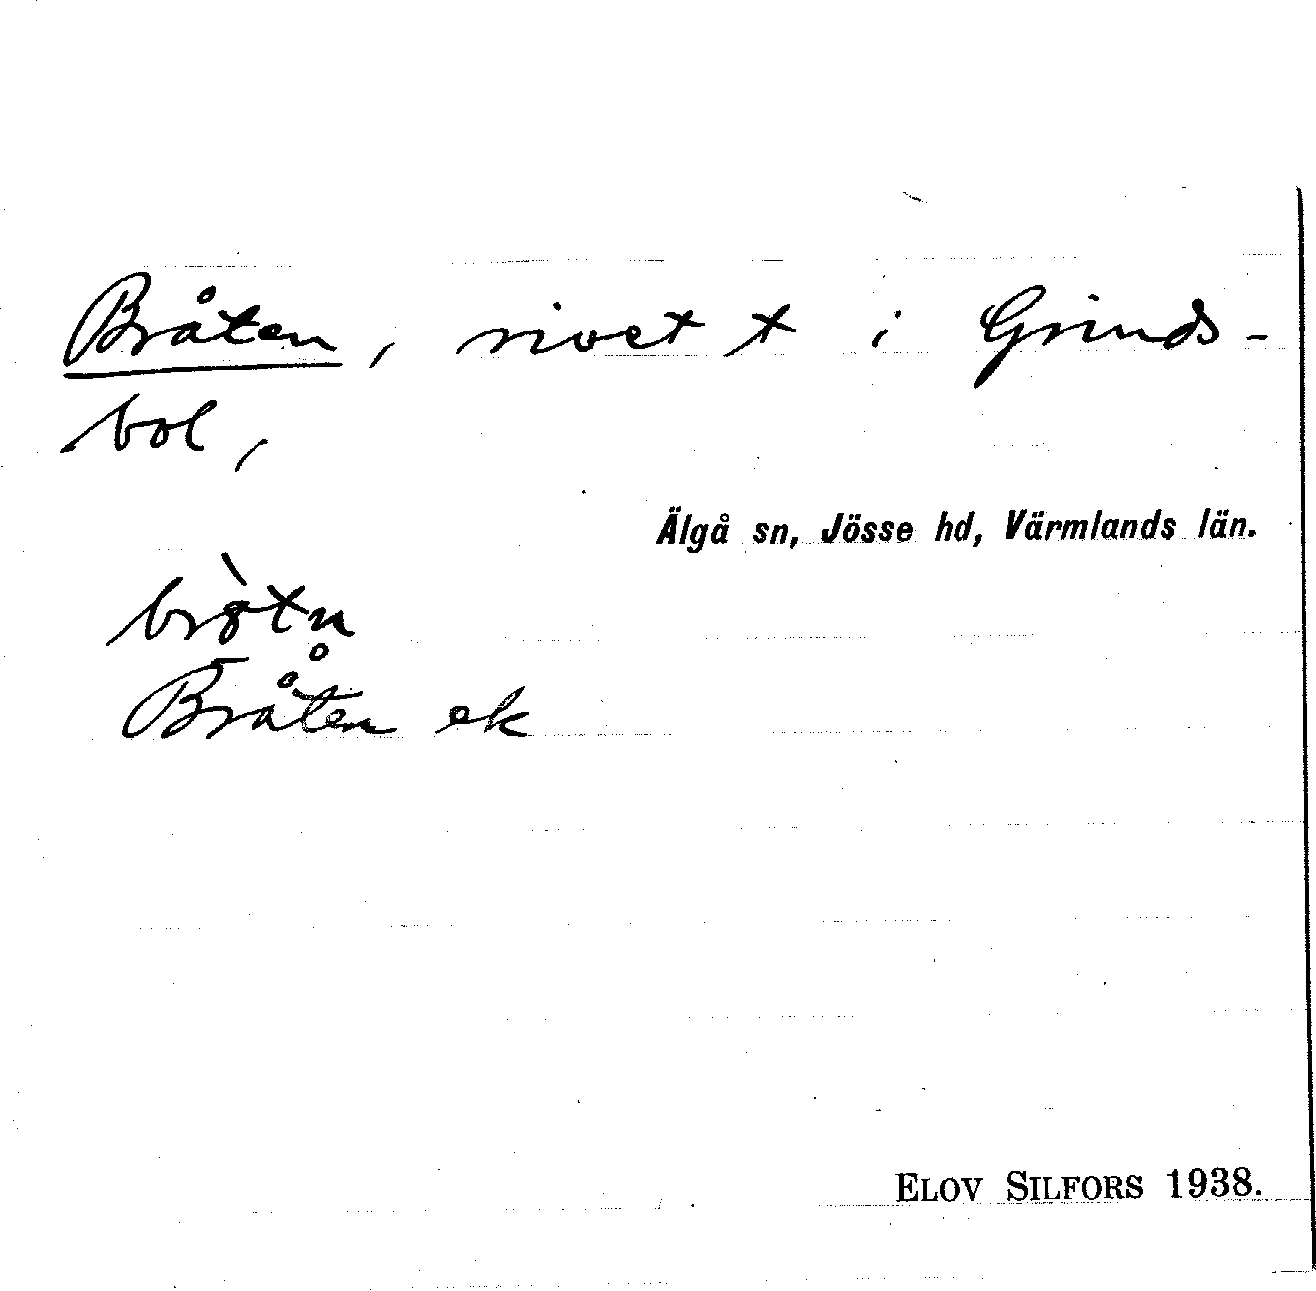 Bråten, rivet t i Grinds-
bol,
Älgå sn, Jösse hd, Värmlands län.
Bråten ek
ELOV SILFORS 1938.